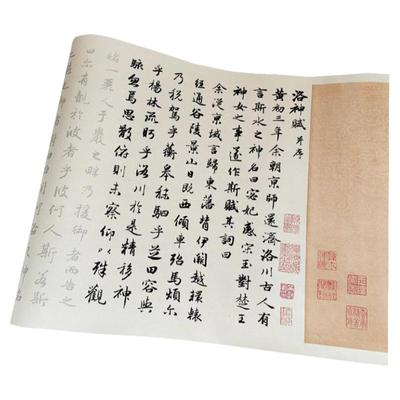 洛神賦 并序
黃初三年余朝京師還濟洛川古人有
言斯水之神名曰宓妃感宋玉對楚王
神女之事遂作斯賦其詞曰
余從京域言歸東藩背伊闕越轘轅
經通谷陵景山日既西傾車殆馬煩尔
乃稅駕乎蘅皋秣駟乎芝田容與
乎楊林流眄乎洛川於是精移神
駭忽焉思散俯則未察仰以殊觀
睹一麗人于巖之畔乃援御者而告之
曰尔有覿於彼者乎彼何人斯若斯